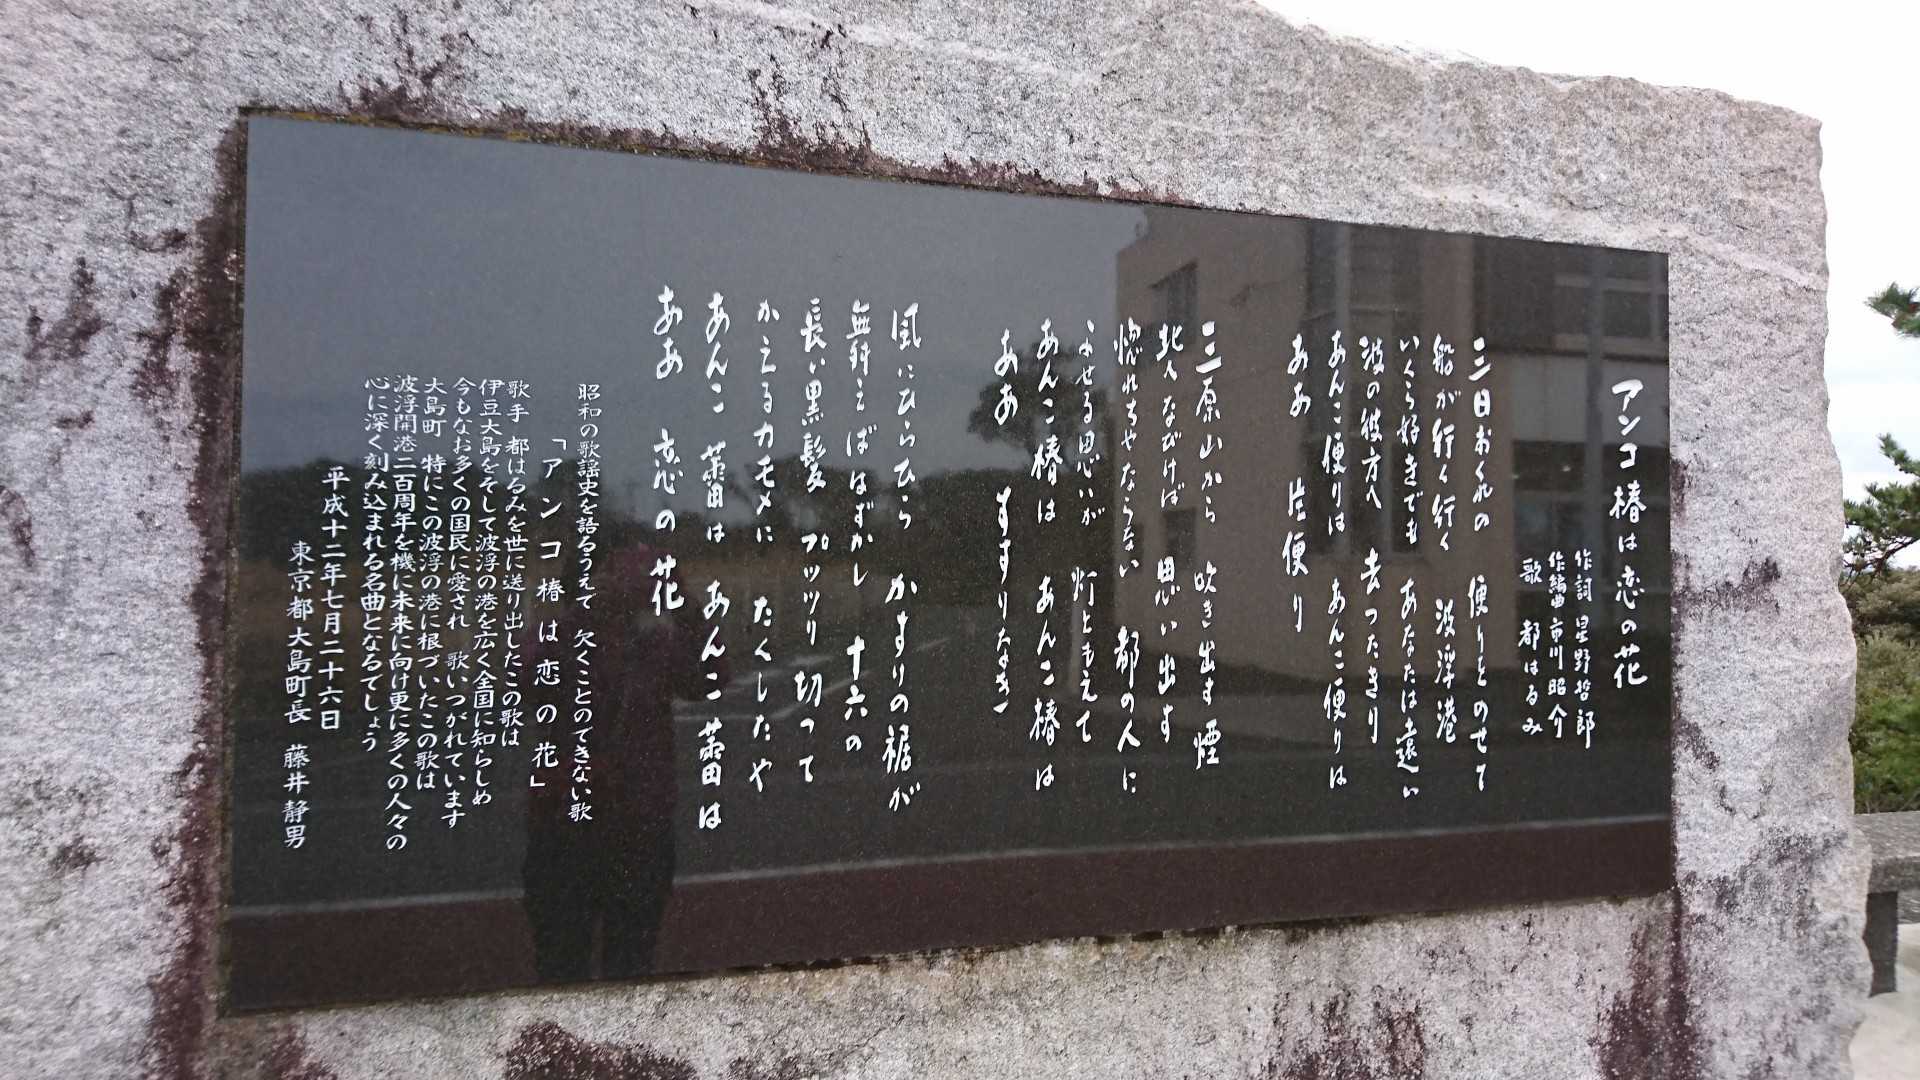 アンコ椿は恋の花
作詞 星野哲郎
作編曲 市川昭介
歌 都はるみ
三日おくれの 便りをのせて
船が行く行く 波浮港
いくら好きでも あなたは遠い
波の彼方へ 去ったきり
あんこ便りは あんこ便りは
ああ 片便り
三原山から 吹き出す煙
北へなびけば 思い出す
惚れちゃならない 都の人に
よせる思いが 灯ともえて
あんこ椿は あんこ椿は
ああ すすりなき
風にひらひら かすりの裾が
無料えばはずかし 十六の
長い黒髪 プッツリ切って
かえるカモメに たくしたや
あんこ蕾は あんこ蕾は
ああ 恋の花
昭和の歌謡史を語るうえて 欠くことのできない歌
「アンコ椿は恋の花」
歌手 都はるみを世に送り出したこの歌は
伊豆大島をそして波浮の港を広く全国に知らしめ
今もなお多くの国民に愛され 歌いつがれています
大島町 特にこの波浮の港に根づいたこの歌は
波浮開港二百周年を機に未来に向け更に多くの人々の
心に深く刻み込まれる名曲となるでしょう
平成十二年七月二十六日
東京都大島町長 藤井静男